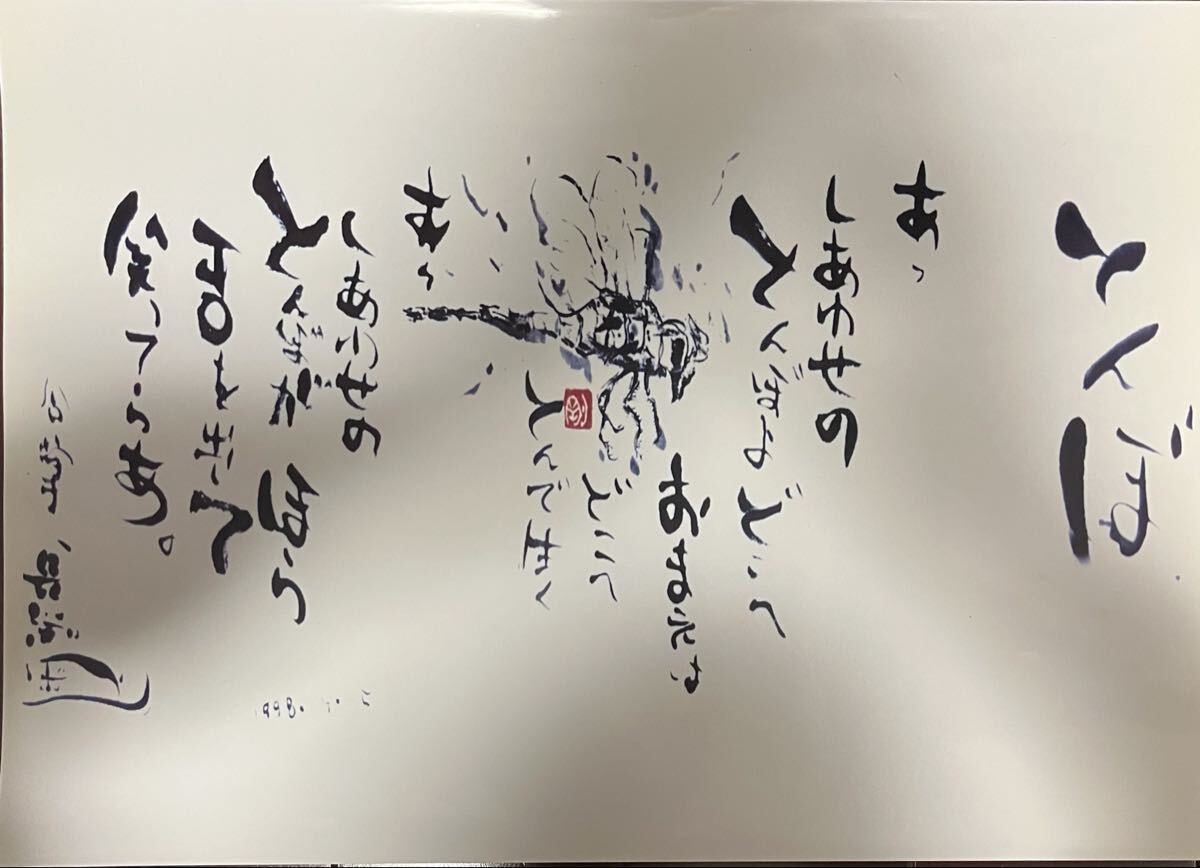 とんぼ
ああ
しあわせの
とんぼよ どこへ
お前は
どこへ
とんで行く
ああ
しあわせの
とんぼが ほら
舌を出して
笑ってらあ。
1998.